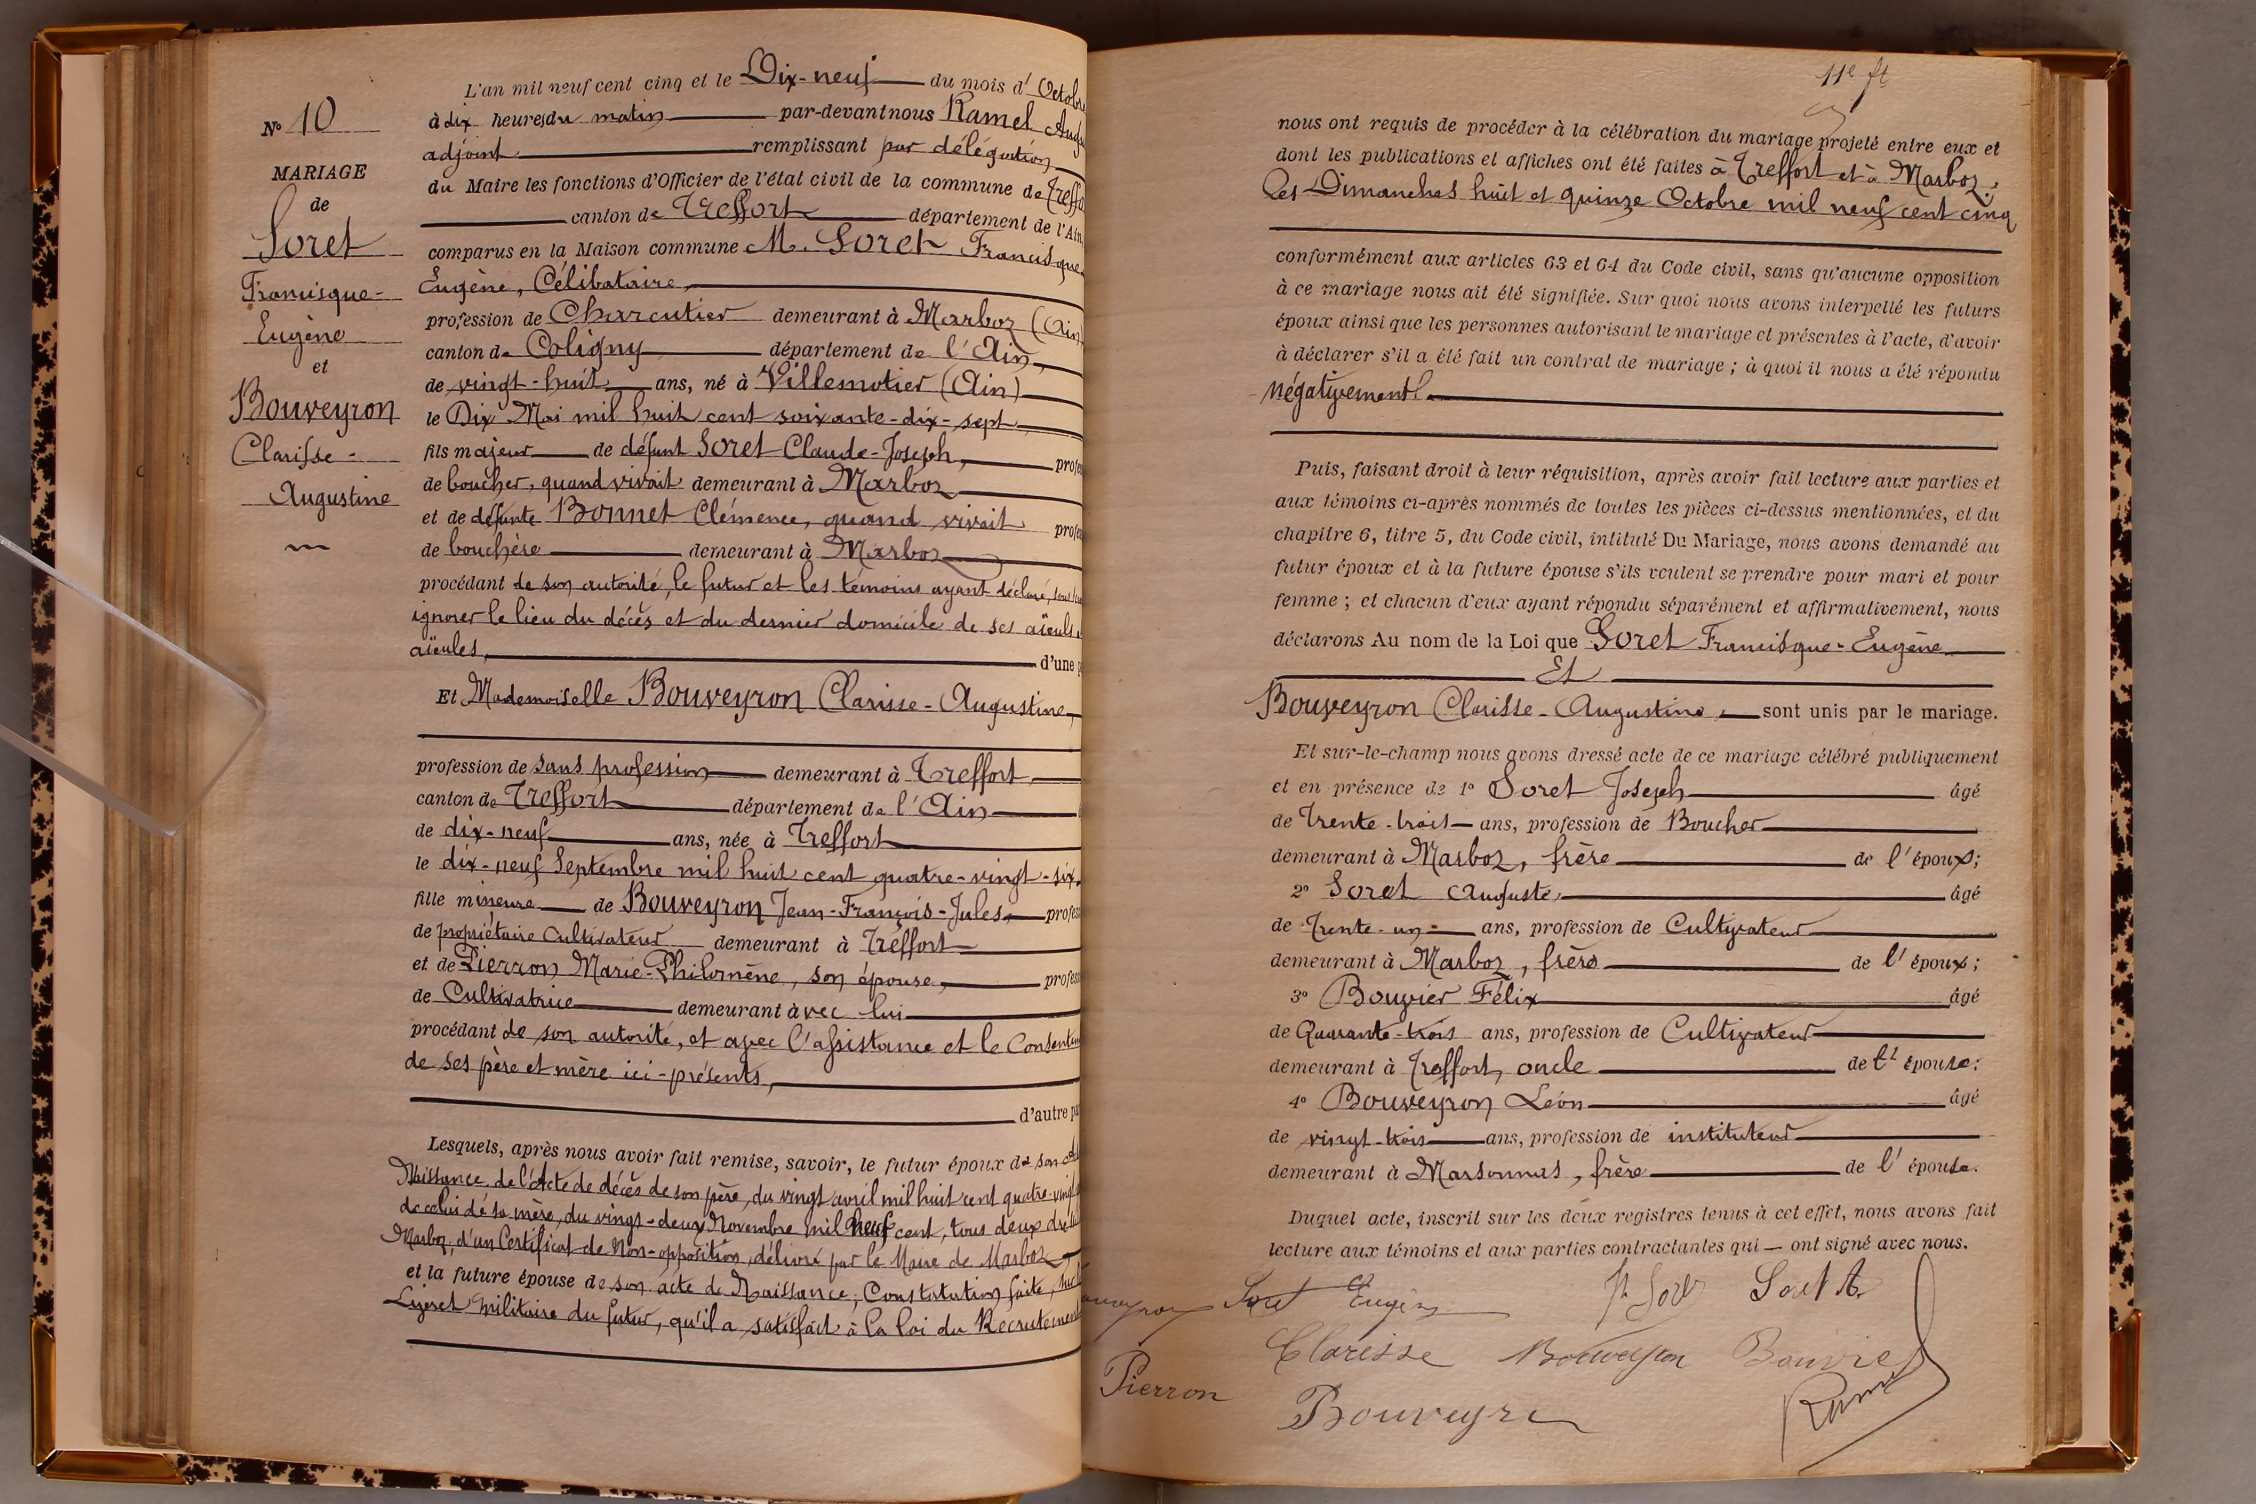 N° 10
MARIAGE
de
Soret
Francisque-
Eugène
et
Bouveyron
Clarisse-
Augustine
L'an mil neuf cent cinq et le Dix-neuf du mois d'Octobre
à dix heures du matin par-devant nous Ramel
adjoint remplissant par délégation
du Maire les fonctions d'Officier de l'état civil de la commune de
canton de Treffort département de l'Ain
comparus en la Maison commune M. Soret Francisque
Eugène, Célibataire,
profession de Charcutier demeurant à Marboz (Ain)
canton de Coligny département de l'Ain,
de vingt-huit ans, né à Villemotier (Ain)
le Dix Mai mil huit cent soixante-dix-sept,
fils majeur de défunt Soret Claude-Joseph,
de boucher, quand vivait demeurant à Marboz
et de défunte Bonnet Clémence, quand vivait
de bouchère demeurant à Marboz
procédant de son autorité, le futur et les témoins ayant déclaré,
ignorer le lieu du décès et du dernier domicile de ses aïeuls
aïeules, d'une
Et Mademoiselle Bouveyron Clarisse-Augustine,
profession de sans profession demeurant à Treffort,
canton de Treffort département de l'Ain
de dix-neuf ans, née à Treffort
le dix-neuf Septembre mil huit cent quatre-vingt-six,
fille mineure de Bouveyron Jean-François-Jules,
de propriétaire Cultivateur demeurant à Treffort
et de Pierron Marie-Philomène, son épouse,
de Cultivatrice demeurant avec lui
procédant de son autorité, et avec l'assistance et le
de ses père et mère ici-présents,
d'autre
Lesquels, après nous avoir fait remise, savoir, le futur époux de son
Naissance, de l'Acte de décès de son père, du vingt avril mil huit cent
de celui de sa mère, du vingt-deux Novembre mil neuf cent, tous deux
Marboz, d'un Certificat de Non-opposition, délivré par le Maire de Marboz,
et la future épouse de son acte de Naissance; Constatation faite,
Livret militaire du futur, qu'il a satisfait à la loi du Recrutement
11e ft
nous ont requis de procéder à la célébration du mariage projeté entre eux et
dont les publications et affiches ont été faites à Treffort et à Marboz,
les Dimanches huit et quinze Octobre mil neuf cent cinq
conformément aux articles 63 et 64 du Code civil, sans qu'aucune opposition
à ce mariage nous ait été signifiée. Sur quoi nous avons interpellé les futurs
époux ainsi que les personnes autorisant le mariage et présentes à l'acte, d'avoir
à déclarer s'il a été fait un contrat de mariage ; à quoi il nous a été répondu
négativement.
Puis, faisant droit à leur réquisition, après avoir fait lecture aux parties et
aux témoins ci-après nommés de toutes les pièces ci-dessus mentionnées, et du
chapitre 6, titre 5, du Code civil, intitulé Du Mariage, nous avons demandé au
futur époux et à la future épouse s'ils veulent se prendre pour mari et pour
femme ; et chacun d'eux ayant répondu séparément et affirmativement, nous
déclarons Au nom de la Loi que Soret Francisque-Eugène
Et
Bouveyron Clarisse-Augustine, sont unis par le mariage.
Et sur-le-champ nous avons dressé acte de ce mariage célébré publiquement
et en présence de 1° Soret Joseph âgé
de Trente-trois ans, profession de Boucher
demeurant à Marboz, frère de l'époux;
2° Soret Auguste, âgé
de Trente-un ans, profession de Cultivateur
demeurant à Marboz, frère de l'époux;
3° Bouvier Félix âgé
de Quarante-trois ans, profession de Cultivateur
demeurant à Treffort, oncle de l'épouse;
4° Bouveyron Léon âgé
de vingt-trois ans, profession de instituteur
demeurant à Marsonnas, frère de l'épouse.
Duquel acte, inscrit sur les deux registres tenus à cet effet, nous avons fait
lecture aux témoins et aux parties contractantes qui — ont signé avec nous.
Soret Eugène Soret A.
Clarisse Bouveyron Bouvier
Pierron Ramel